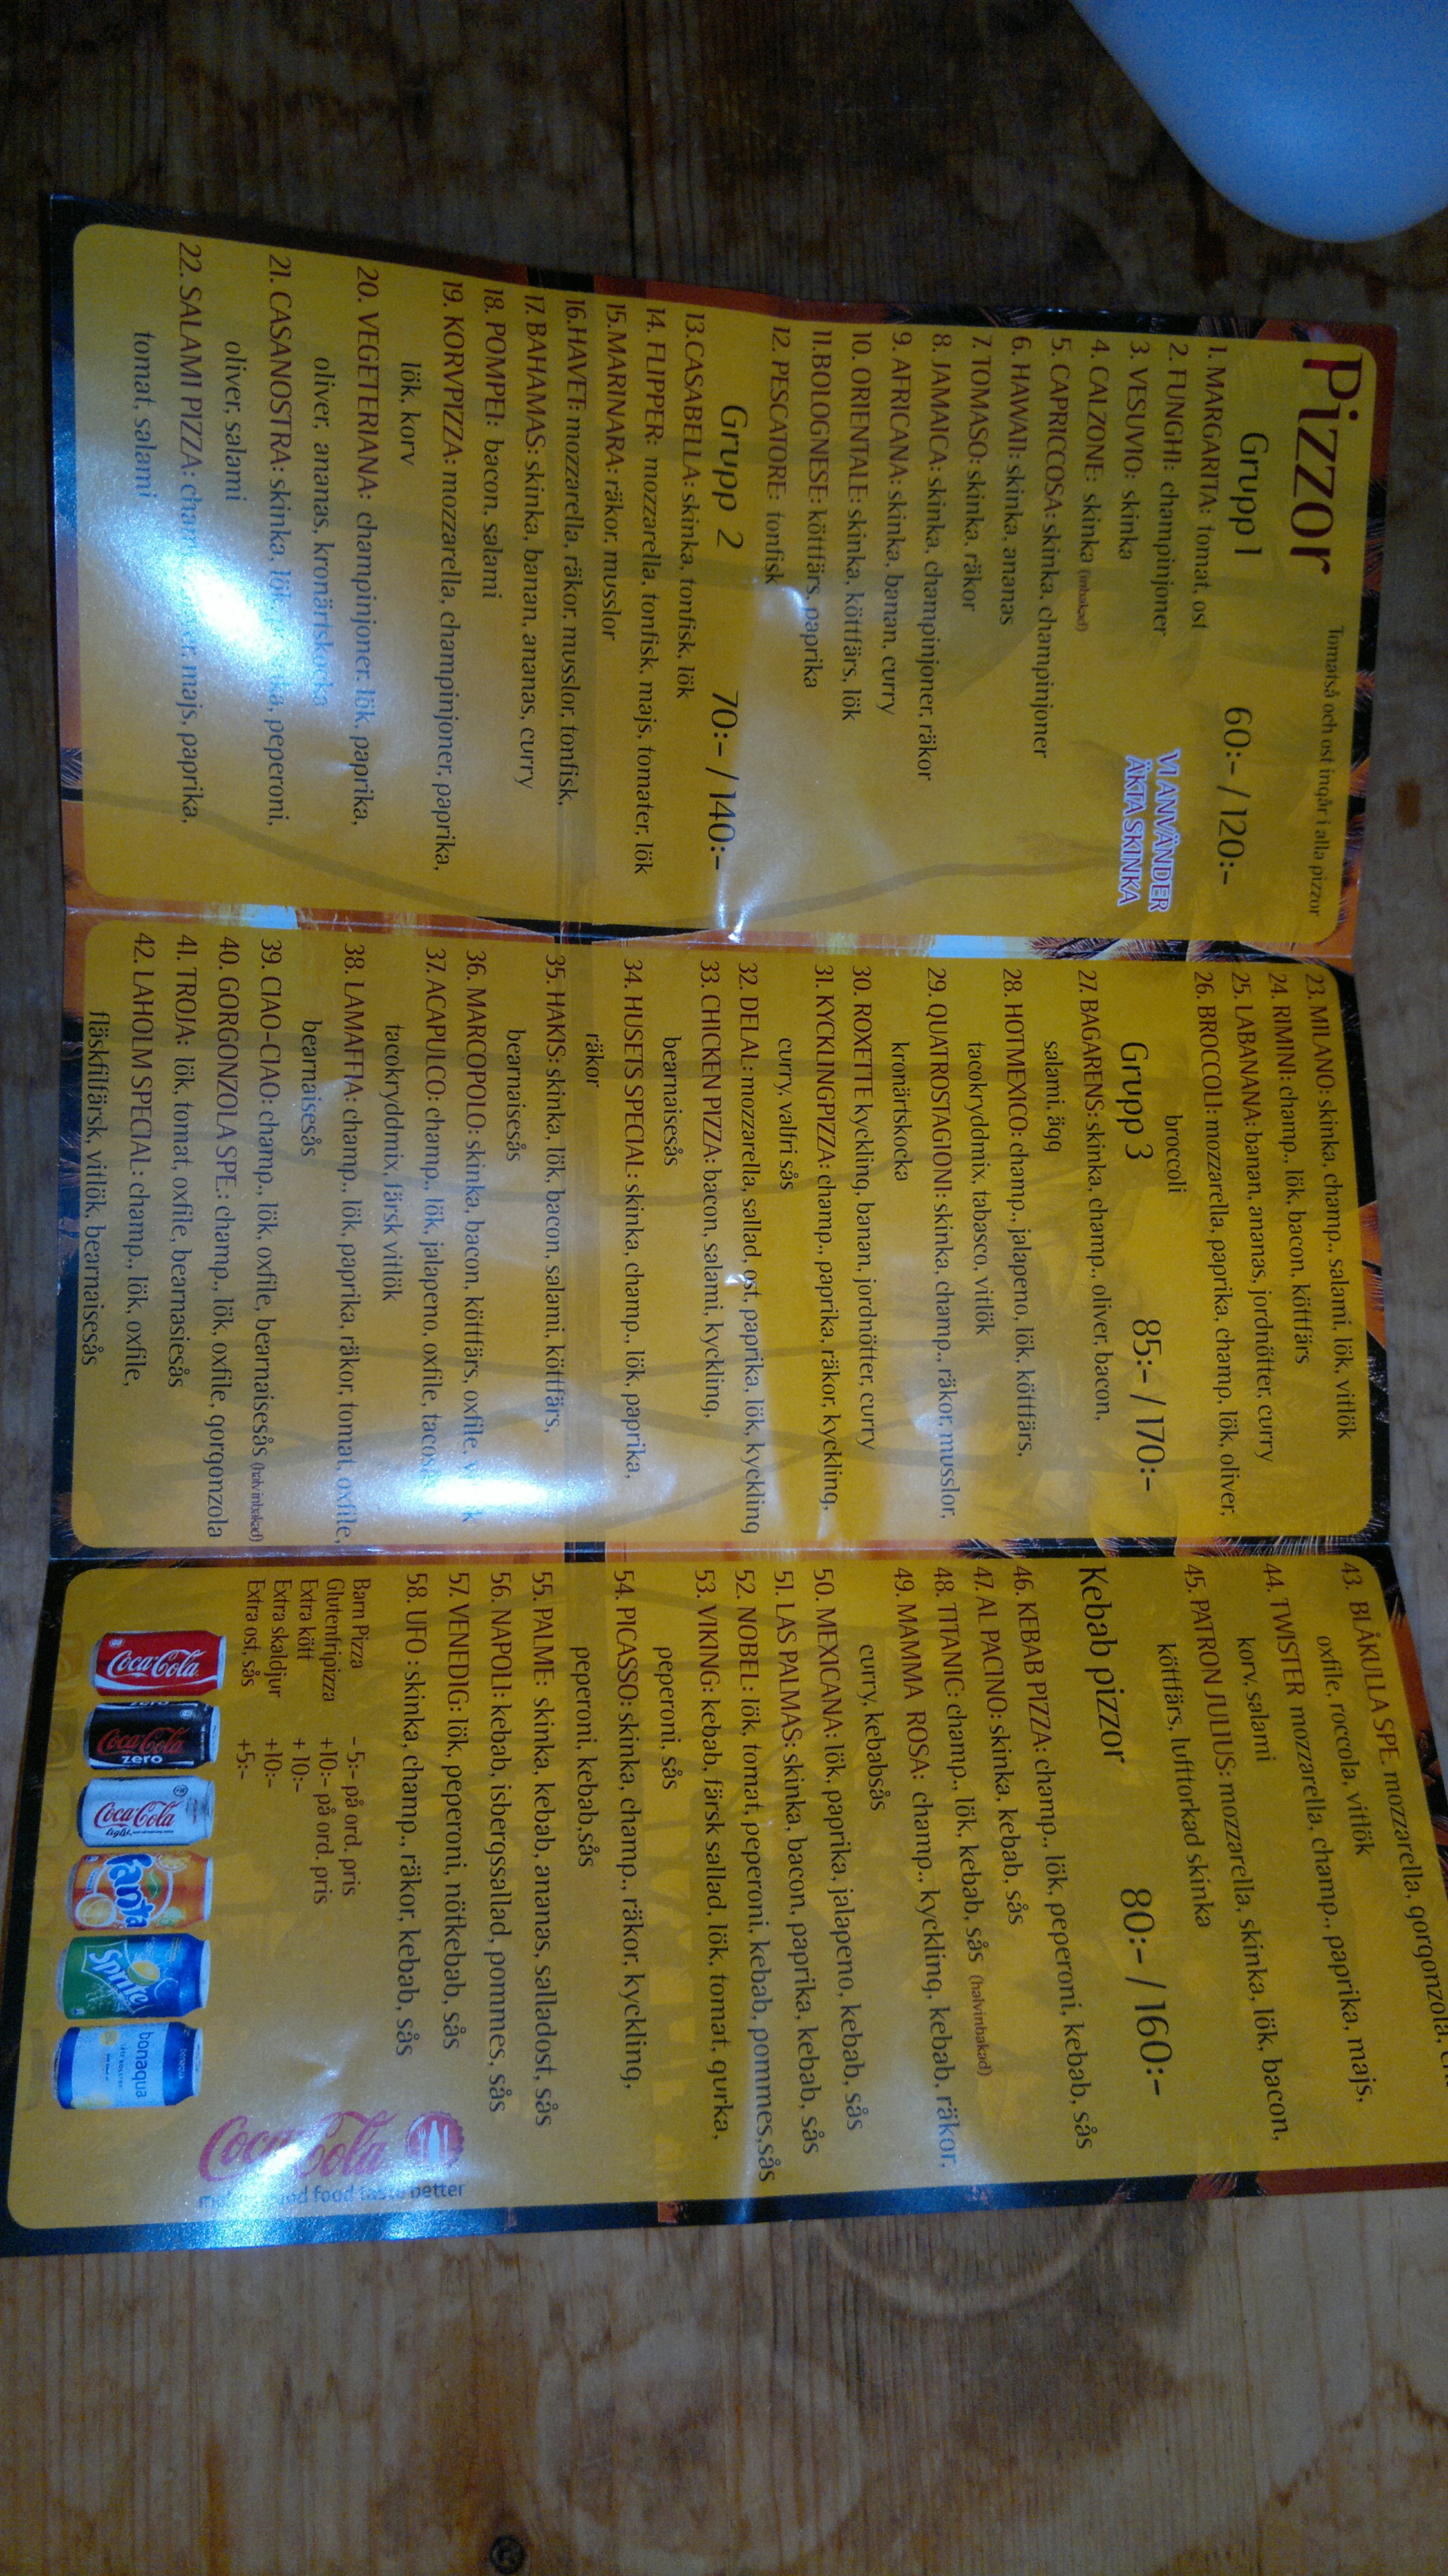 Pizzor
Tomatså och ost ingår i alla pizzor
Grupp 1 60:- / 120:-
1. MARGARITA: tomat, ost
2. FUNGHI: champinjoner
3. VESUVIO: skinka
4. CALZONE: skinka (inbakad)
5. CAPRICCOSA: skinka, champinjoner
6. HAWAII: skinka, ananas
7. TOMASO: skinka, räkor
8. JAMAICA: skinka, champinjoner, räkor
9. AFRICANA: skinka, banan, curry
10. ORIENTALE: skinka, köttfärs, lök
11. BOLOGNESE: köttfärs, paprika
12. PESCATORE: tonfisk
VI ANVÄNDER
ÄKTA SKINKA
Grupp 2 70:- / 140:-
13.CASABELLA: skinka, tonfisk, lök
14. FLIPPER: mozzarella, tonfisk, majs, tomater, lök
15.MARINARA: räkor, musslor
16.HAVET: mozzarella, räkor, musslor, tonfisk,
17. BAHAMAS: skinka, banan, ananas, curry
18. POMPEI: bacon, salami
19. KORVPIZZA: mozzarella, champinjoner, paprika,
lök, korv
20. VEGETERIANA: champinjoner, lök, paprika,
oliver, ananas, kronärtskocka
21. CASANOSTRA: skinka, lök, peperoni,
oliver, salami
22. SALAMI PIZZA: majs, paprika,
tomat, salami
23. MILANO: skinka, champ., salami, lök, vitlök
24. RIMINI: champ., lök, bacon, köttfärs
25. LABANANA: banan, ananas, jordnötter, curry
26. BROCCOLI: mozzarella, paprika, champ, lök, oliver,
broccoli
Grupp 3 85:- / 170:-
27. BAGARENS: skinka, champ., oliver, bacon,
salami, ägg
28. HOTMEXICO: champ., jalapeno, lök, köttfärs,
tacokryddmix, tabasco, vitlök
29. QUATROSTAGIONI: skinka, champ., räkor, musslor,
kronärtskocka
30. ROXETTE kyckling, banan, jordnötter, curry
31. KYCKLINGPIZZA: champ., paprika, räkor, kyckling,
curry, valfri sås
32. DELAL: mozzarella, sallad, ost, paprika, lök, kyckling
33. CHICKEN PIZZA: bacon, salami, kyckling,
bearnaisesås
34. HUSETS SPECIAL: skinka, champ., lök, paprika,
räkor
35. HAKIS: skinka, lök, bacon, salami, köttfärs,
bearnaisesås
36. MARCOPOLO: skinka, bacon, köttfärs, oxfile,
37. ACAPULCO: champ., lök, jalapeno, oxfile,
tacokryddmix, färsk vitlök
38. LAMAFFIA: champ., lök, paprika, räkor, tomat, oxfile,
bearnaisesås
39. CIAO-CIAO: champ., lök, oxfile, bearnaisesås (halvinbakad)
40. GORGONZOLA SPE.: champ., lök, oxfile, gorgonzola
41. TROJA: lök, tomat, oxfile, bearnasiesås
42. LAHOLM SPECIAL: champ., lök, oxfile,
fläskfilfärsk, vitlök, bearnaisesås
43. BLÅKULLA SPE. mozzarella, gorgonzola,
oxfile, roccola, vitlök
44. TWISTER mozzarella, champ., paprika, majs,
korv, salami
45. PATRON JULIUS: mozzarella, skinka, lök, bacon,
köttfärs, lufttorkad skinka
Kebab pizzor 80:- / 160:-
46. KEBAB PIZZA: champ., lök, peperoni, kebab, sås
47. AL PACINO: skinka, kebab, sås
48. TITANIC: champ., lök, kebab, sås (halvinbakad)
49. MAMMA ROSA: champ., kyckling, kebab, räkor,
curry, kebabsås
50. MEXICANA: lök, paprika, jalapeno, kebab, sås
51. LAS PALMAS: skinka, bacon, paprika, kebab, sås
52. NOBEL: lök, tomat, peperoni, kebab, pommes,sås
53. VIKING: kebab, färsk sallad, lök, tomat, gurka,
peperoni, sås
54. PICASSO: skinka, champ., räkor, kyckling,
peperoni, kebab,sås
55. PALME: skinka, kebab, ananas, salladost, sås
56. NAPOLI: kebab, isbergssallad, pommes, sås
57. VENEDIG: lök, peperoni, nötkebab, sås
58. UFO : skinka, champ., räkor, kebab, sås
Barn Pizza - 5:- på ord. pris
Glutenfripizza +10:- på ord. pris
Extra kött + 10:-
Extra skaldjur +10:-
Extra ost, sås +5:-
Coca-Cola
Coca-Cola zero
Coca-Cola light
Fanta
Sprite
bonaqua
Coca-Cola
food taste better